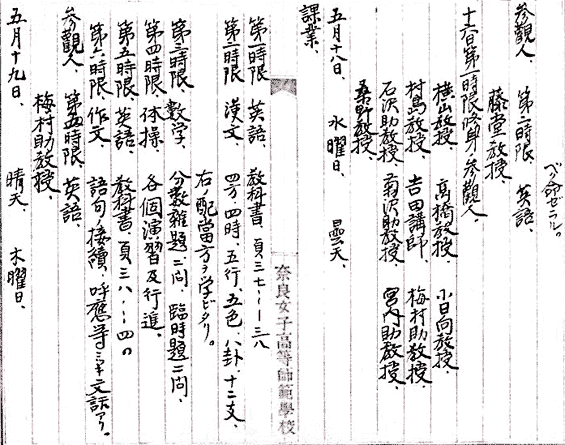 ベク命ゼラル。
参觀人、第二時限、英語、
藤堂教授、
十六日第一時限修身参觀人、
横山教授、高橋教授、小日向教授、
村島教授、吉田講師、梅村助教授、
石沢助教授、菊沢助教授、宮内助教授、
桑野教授、
五月十八日、水曜日、曇天、
課業、
奈良女子高等師範學校
第一時限、英語、教科書、頁三七、―三八
第二時限、漢文、四方四時、五行、五色、八卦、十二支、
右ノ配當方ヲ学ビタリ。
第三時限、數学、分數雜題二問、臨時題二問、
第四時限、体操、各個演習及行進、
第五時限、英語、教科書、頁三八、―四〇
第六時限、作文、語句ノ接續、呼應等ニツキ文話アリ。
参觀人、第五時限、英語、
梅村助教授、
五月十九日、晴天、木曜日、